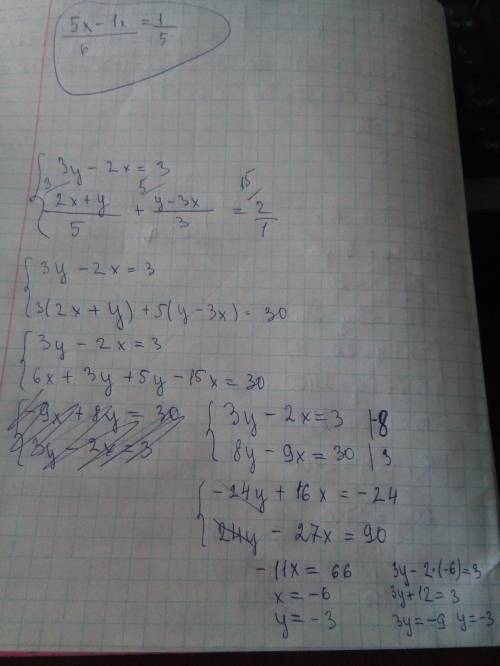 5x - 1x = 1
6 5
{ 3y - 2x = 3
3 5 15
2x + y + y - 3x = 2
5 3 1
{ 3y - 2x = 3
3(2x + y) + 5(y - 3x) = 30
{ 3y - 2x = 3
6x + 3y + 5y - 15x = 30
{ -9x + 8y = 30 { 3y - 2x = 3 |-8
3y - 2x = 3 8y - 9x = 30 | 3
{ -24y + 16x = -24
24y - 27x = 90
-11x = 66 3y - 2·(-6) = 3
x = -6 3y + 12 = 3
y = -3 3y = -9 y = -3